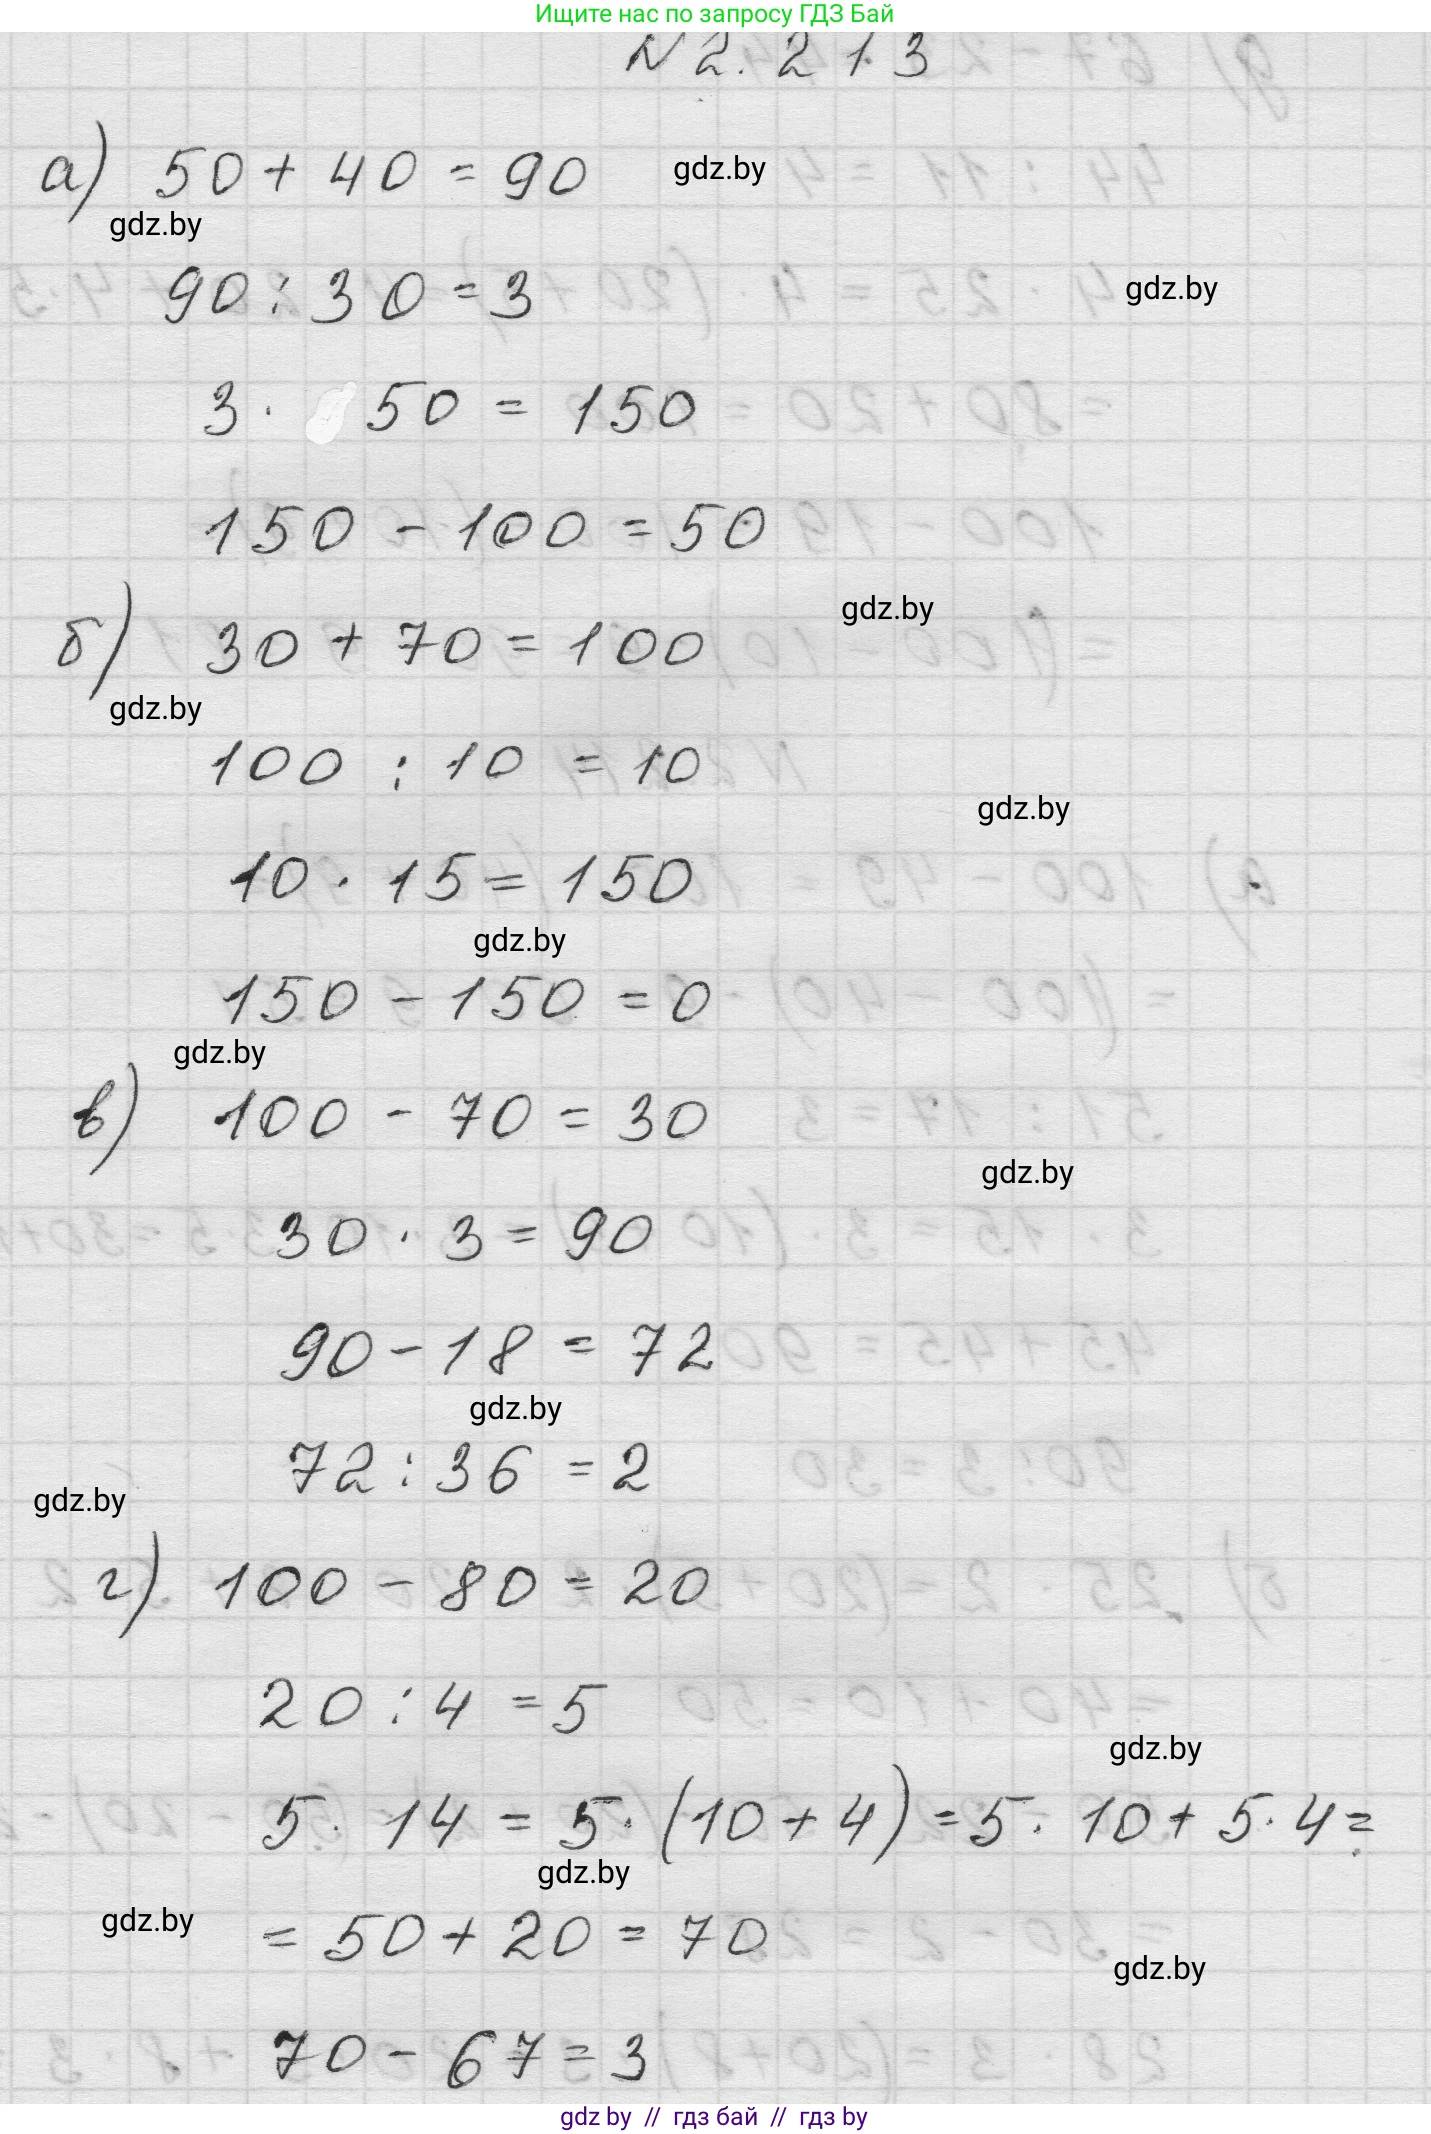 Ищите нас по запросу ГДЗ Бай
N 2.213
а) 50 + 40 = 90
gdz.by
gdz.by
90 : 30 = 3
gdz.by
3 · 50 = 150
150 - 100 = 50
gdz.by
б) 30 + 70 = 100
gdz.by
100 : 10 = 10
gdz.by
10 · 15 = 150
gdz.by
150 - 150 = 0
gdz.by
в) 100 - 70 = 30
gdz.by
30 · 3 = 90
90 - 18 = 72
gdz.by
72 : 36 = 2
gdz.by
г) 100 - 80 = 20
20 : 4 = 5
gdz.by
5 · 14 = 5 · (10 + 4) = 5 · 10 + 5 · 4 =
gdz.by
gdz.by
= 50 + 20 = 70
gdz.by
70 - 67 = 3
gdz by // гдз бай // гдз by